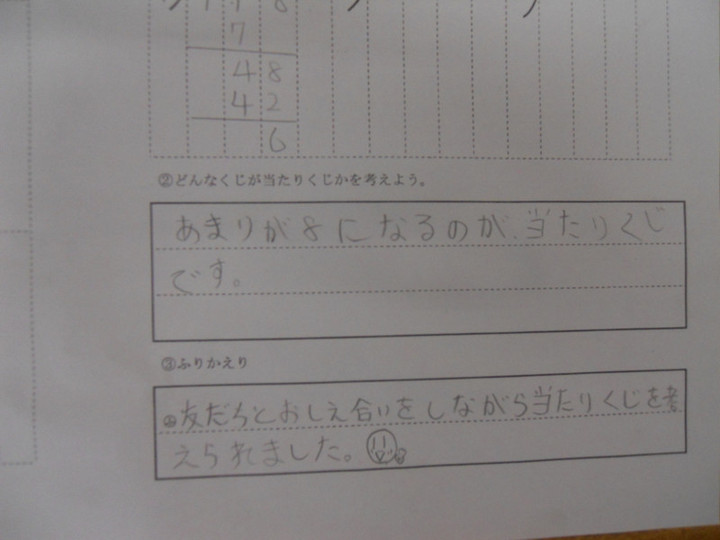 7
48
42
6
②どんなくじが当たりくじかを考えよう。
あまりが8になるのが、当たりくじ
です。
③ふりかえり
友だちとおしえ合いをしながら当たりくじを考
えられました。